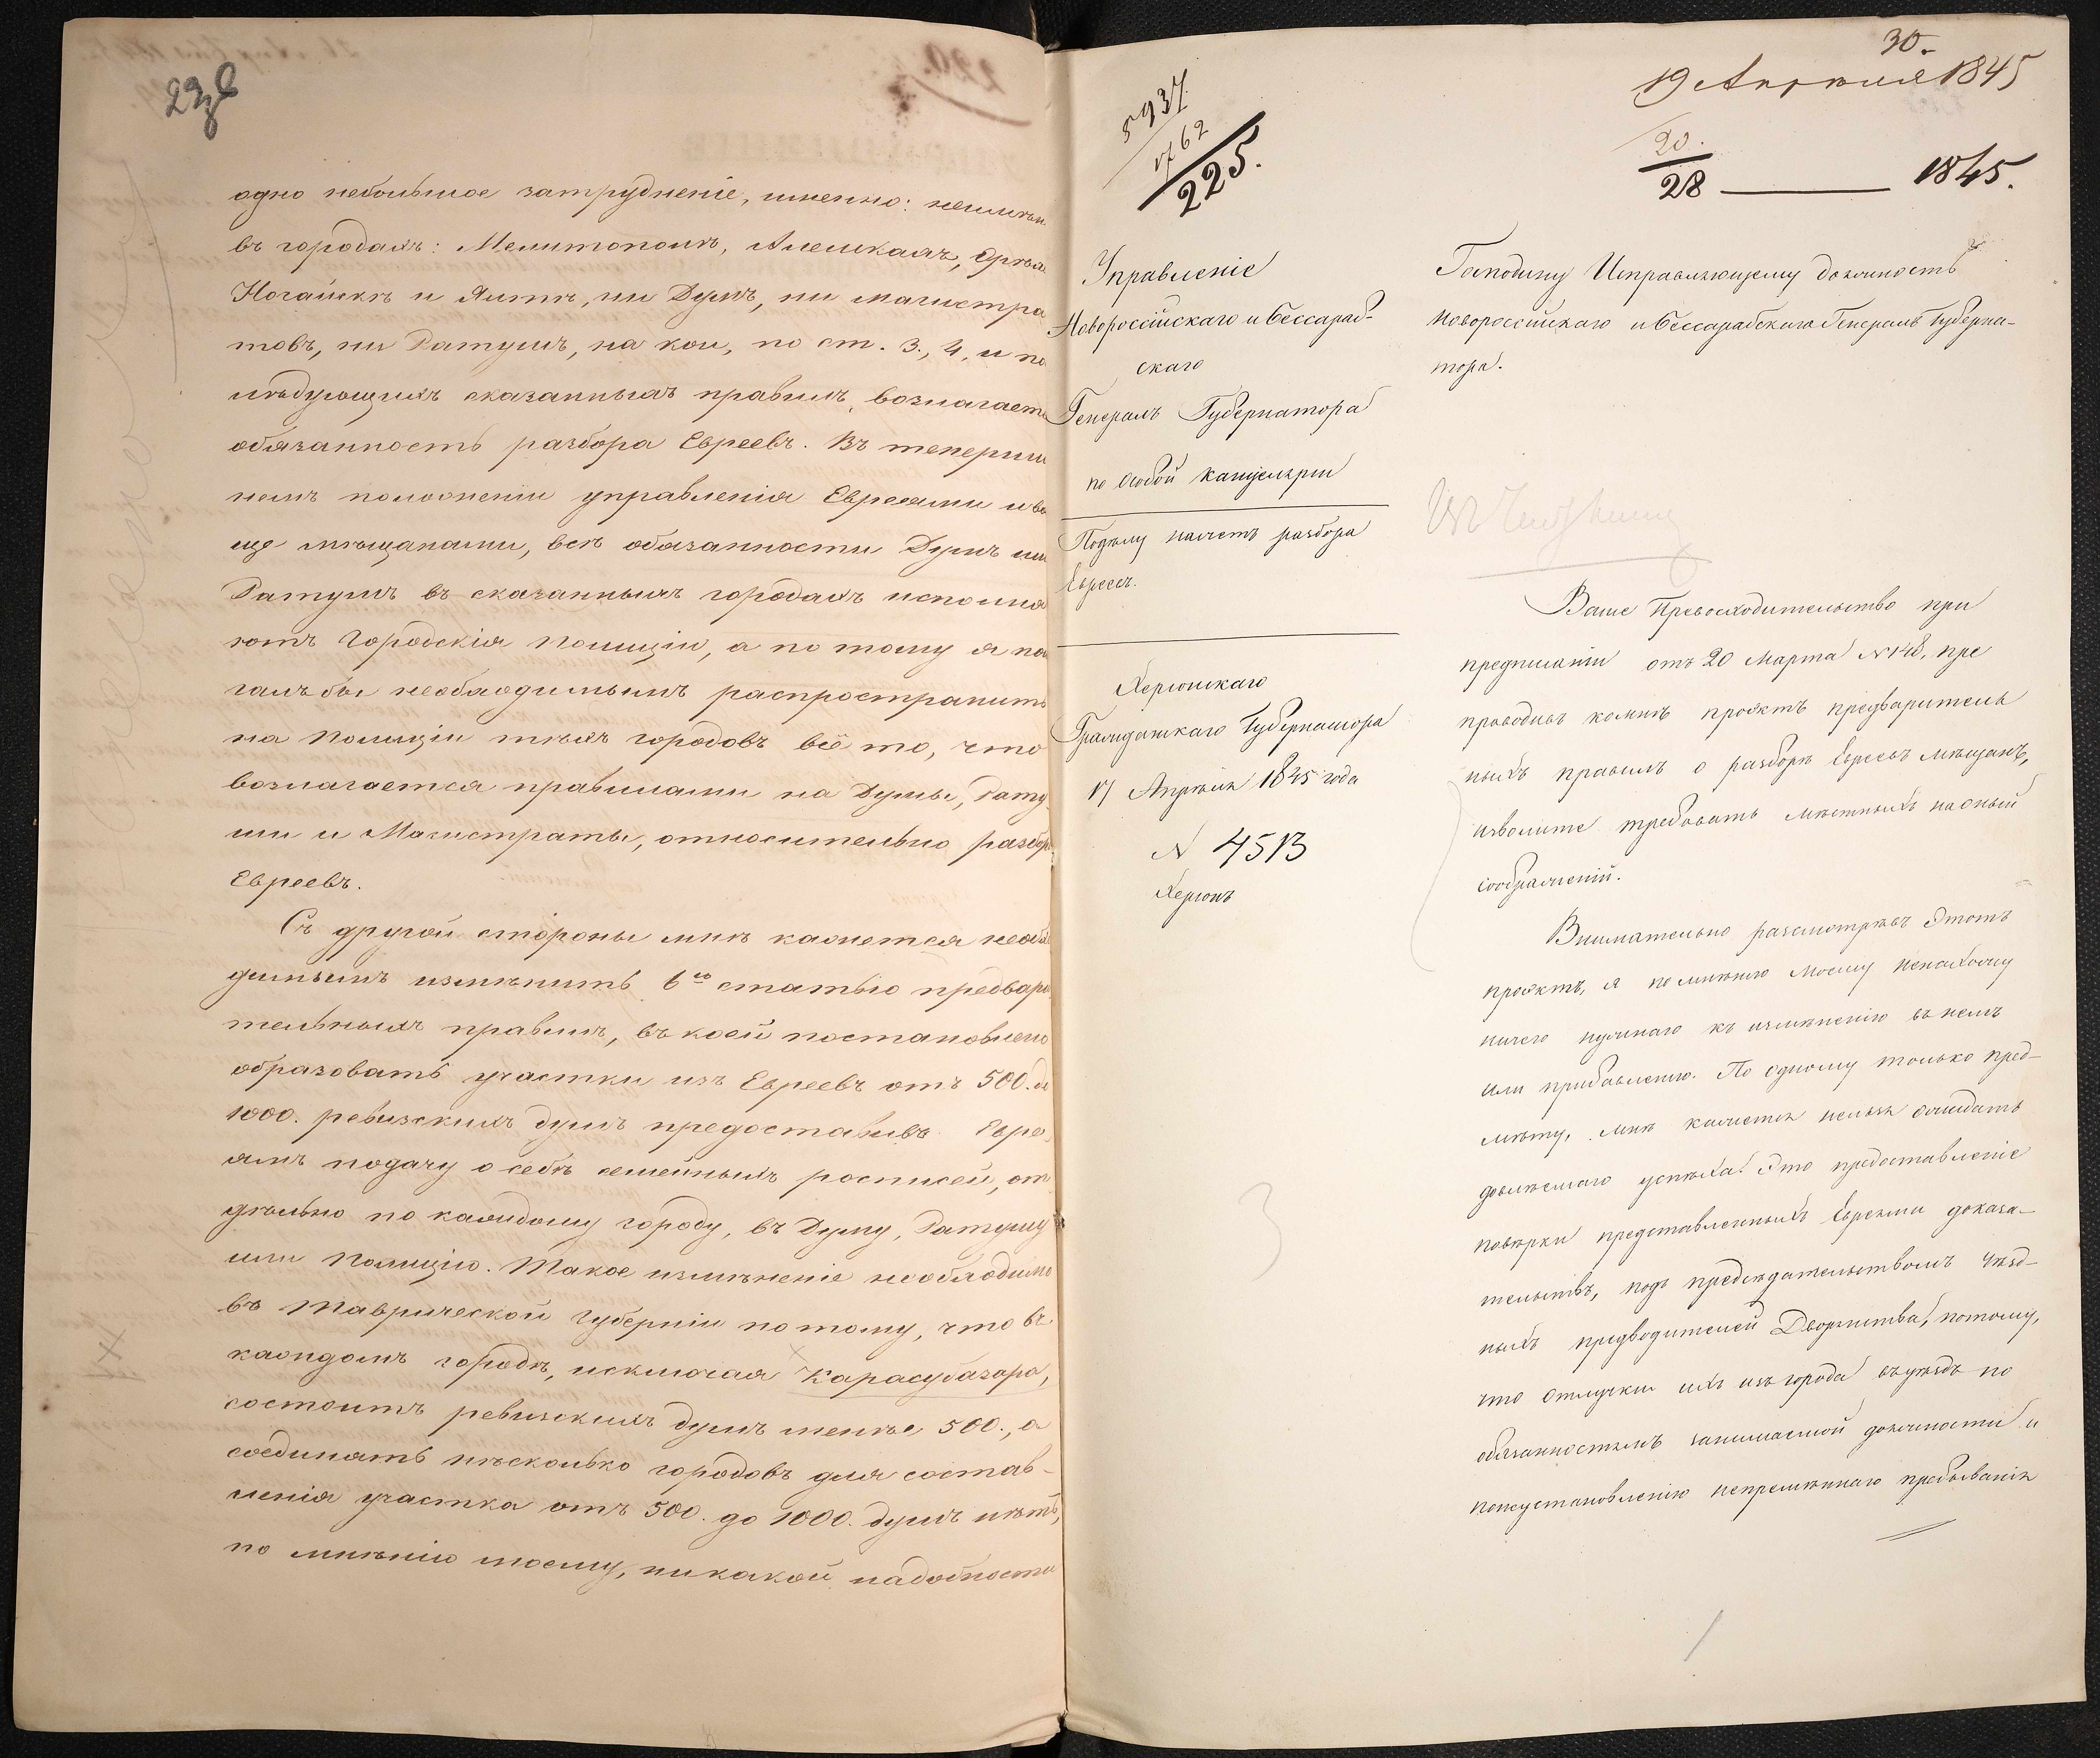 одно небольшое затрудненіе, именно: нетъ ни
въ городахъ: Мелитополѣ, Алешкахъ, Орѣхо
Ногайскѣ и Ялтѣ, ни Думъ, ни магистра
товъ, ни Ратушъ, на кои, по ст. 3., 4. и по
слѣдующихъ сказанныхъ правилъ, возлагаетъ
обязанность разбора Евреевъ. Въ теперяш
немъ положеніи управленія Евреями и во
ще мѣщанами, всѣ обязанности Думъ или
Ратушъ въ сказанныхъ городахъ исполня
ютъ Городскія Полиціи, а по тому я по
галъ бы необходимымъ распространить
на Полиціи тѣхъ городовъ всё то, что
возлагается правилами на Думы, Рату
ши и Магистраты, относительно разбор
Евреевъ.
Съ другой стороны мнѣ кажется необхо
димымъ измѣнить 6ю статью предвари
тельныхъ правилъ, въ коей постановлено
образовать участки изъ Евреевъ отъ 500. до
1000. ревизскихъ душъ предоставивъ Евре
ямъ подачу о себѣ семейныхъ росписей, от
дѣльно по каждому городу, въ Думу, Ратушу
или Полицію. Такое измѣненіе необходимо
въ Таврической Губерніи по тому, что въ
каждомъ городѣ, исключая Карасубазара,
состоитъ ревизскихъ душъ менѣе 500., а
соединять нѣсколько городовъ для состав-
ленія участка отъ 500. до 1000. душъ нѣтъ,
по мнѣнію моему, никакой надобности
30.
19 Апрѣля 1845
5937
1762
225.
20.
28 1845.
Управленіе
Новороссійскаго и Бессараб-
скаго
Генералъ Губернатора
по Особой Канцеляріи
По дѣлу насчетъ разбора
Евреевъ.
Херсонскаго
Гражданскаго Губернатора
17 Апрѣля 1845 года
N 4513
Херсонъ
Господину Исправляющему должность
Новороссійскаго и Бессарабскаго Генералъ Губерна-
тора.
Ваше Превосходительство при
предписаніи отъ 20 Марта N 148, пре
проводивъ комнѣ проэктъ предваритель
ныхъ правилъ о разборѣ Евреевъ мѣщанъ,
изволите требовать мѣстныхъ на оный
соображеній.
Внимательно разсмотрѣвъ этотъ
проэктъ, я по мнѣнію моему ненахожу
ничего нужнаго къ измѣненію въ немъ
или прибавленію. По одному только пред-
мѣту, мнѣ кажется нельзя ожидать
должнаго успѣха. Это предоставленіе
повѣрки представленныхъ Евреями доказа-
тельствъ, подъ предсѣдательствомъ Уѣзд-
ныхъ предводителей Дворянства, потому,
что отлучки ихъ изъ города въ уѣздъ по
обязанностямъ занимаемой должности и
понеустановленію непремѣннаго пребыванія
3